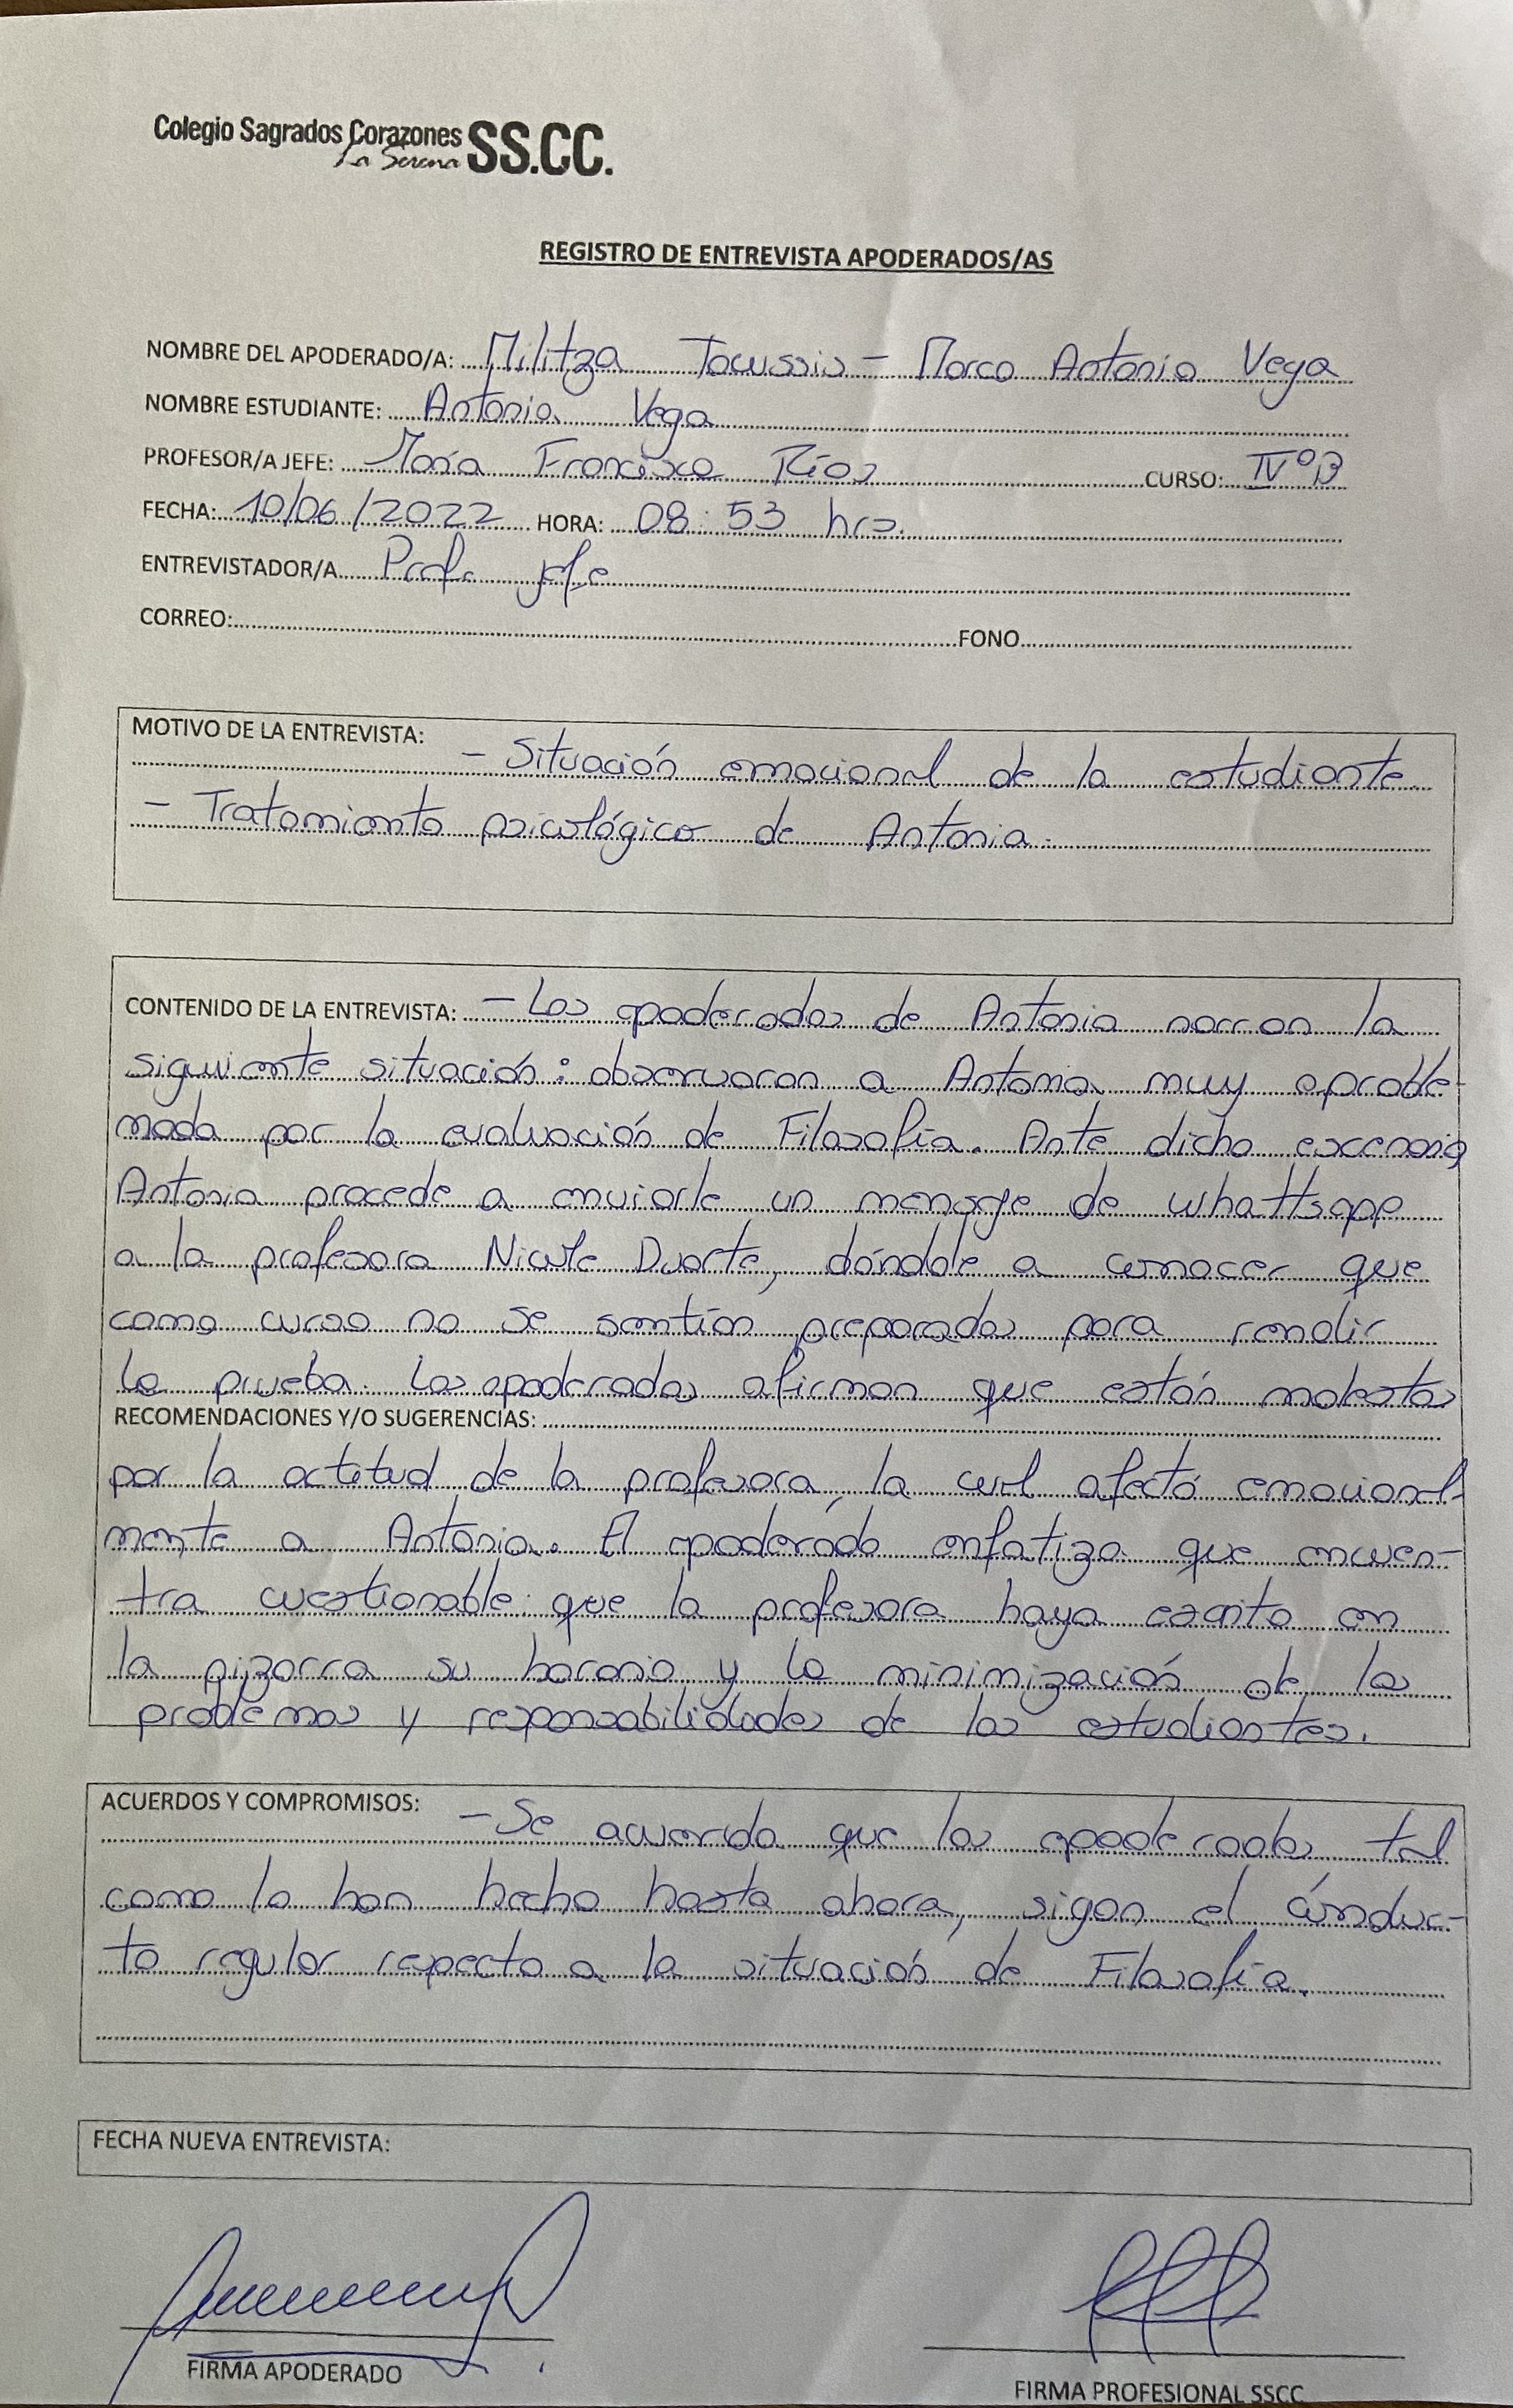 Colegio Sagrados Corazones SS.CC.
La Serena
REGISTRO DE ENTREVISTA APODERADOS/AS
NOMBRE DEL APODERADO/A: Militza Tacussis - Marco Antonio Vega
NOMBRE ESTUDIANTE: Antonia Vega
PROFESOR/A JEFE: María Francisca Ríos CURSO: IVºB
FECHA: 10/06/2022 HORA: 08:53 hrs.
ENTREVISTADOR/A Profe jefe
CORREO: FONO
MOTIVO DE LA ENTREVISTA: - Situación emocional de la estudiante
- Tratamiento psicológico de Antonia.
CONTENIDO DE LA ENTREVISTA: - Los apoderados de Antonia narran la
siguiente situación: observaron a Antonia muy aproble-
mada por la evaluación de Filosofía. Ante dicho escenario
Antonia procede a enviarle un mensaje de whattsapp
a la profesora Nicole Duarte, dándole a conocer que
como curso no se sentían preparados para rendir
la prueba. Los apoderados afirman que están molestos
RECOMENDACIONES Y/O SUGERENCIAS:
por la actitud de la profesora, la cual afectó emocional-
mente a Antonia. El apoderado enfatiza que encuen-
tra cuestionable que la profesora haya escrito en
la pizarra su horario y la minimización de los
problemas y responsabilidades de los estudiantes.
ACUERDOS Y COMPROMISOS: - Se acuerda que los apoderados tal
como lo han hecho hasta ahora, sigan el conduc-
to regular respecto a la situación de Filosofía.
FECHA NUEVA ENTREVISTA:
FIRMA APODERADO
FIRMA PROFESIONAL SSCC